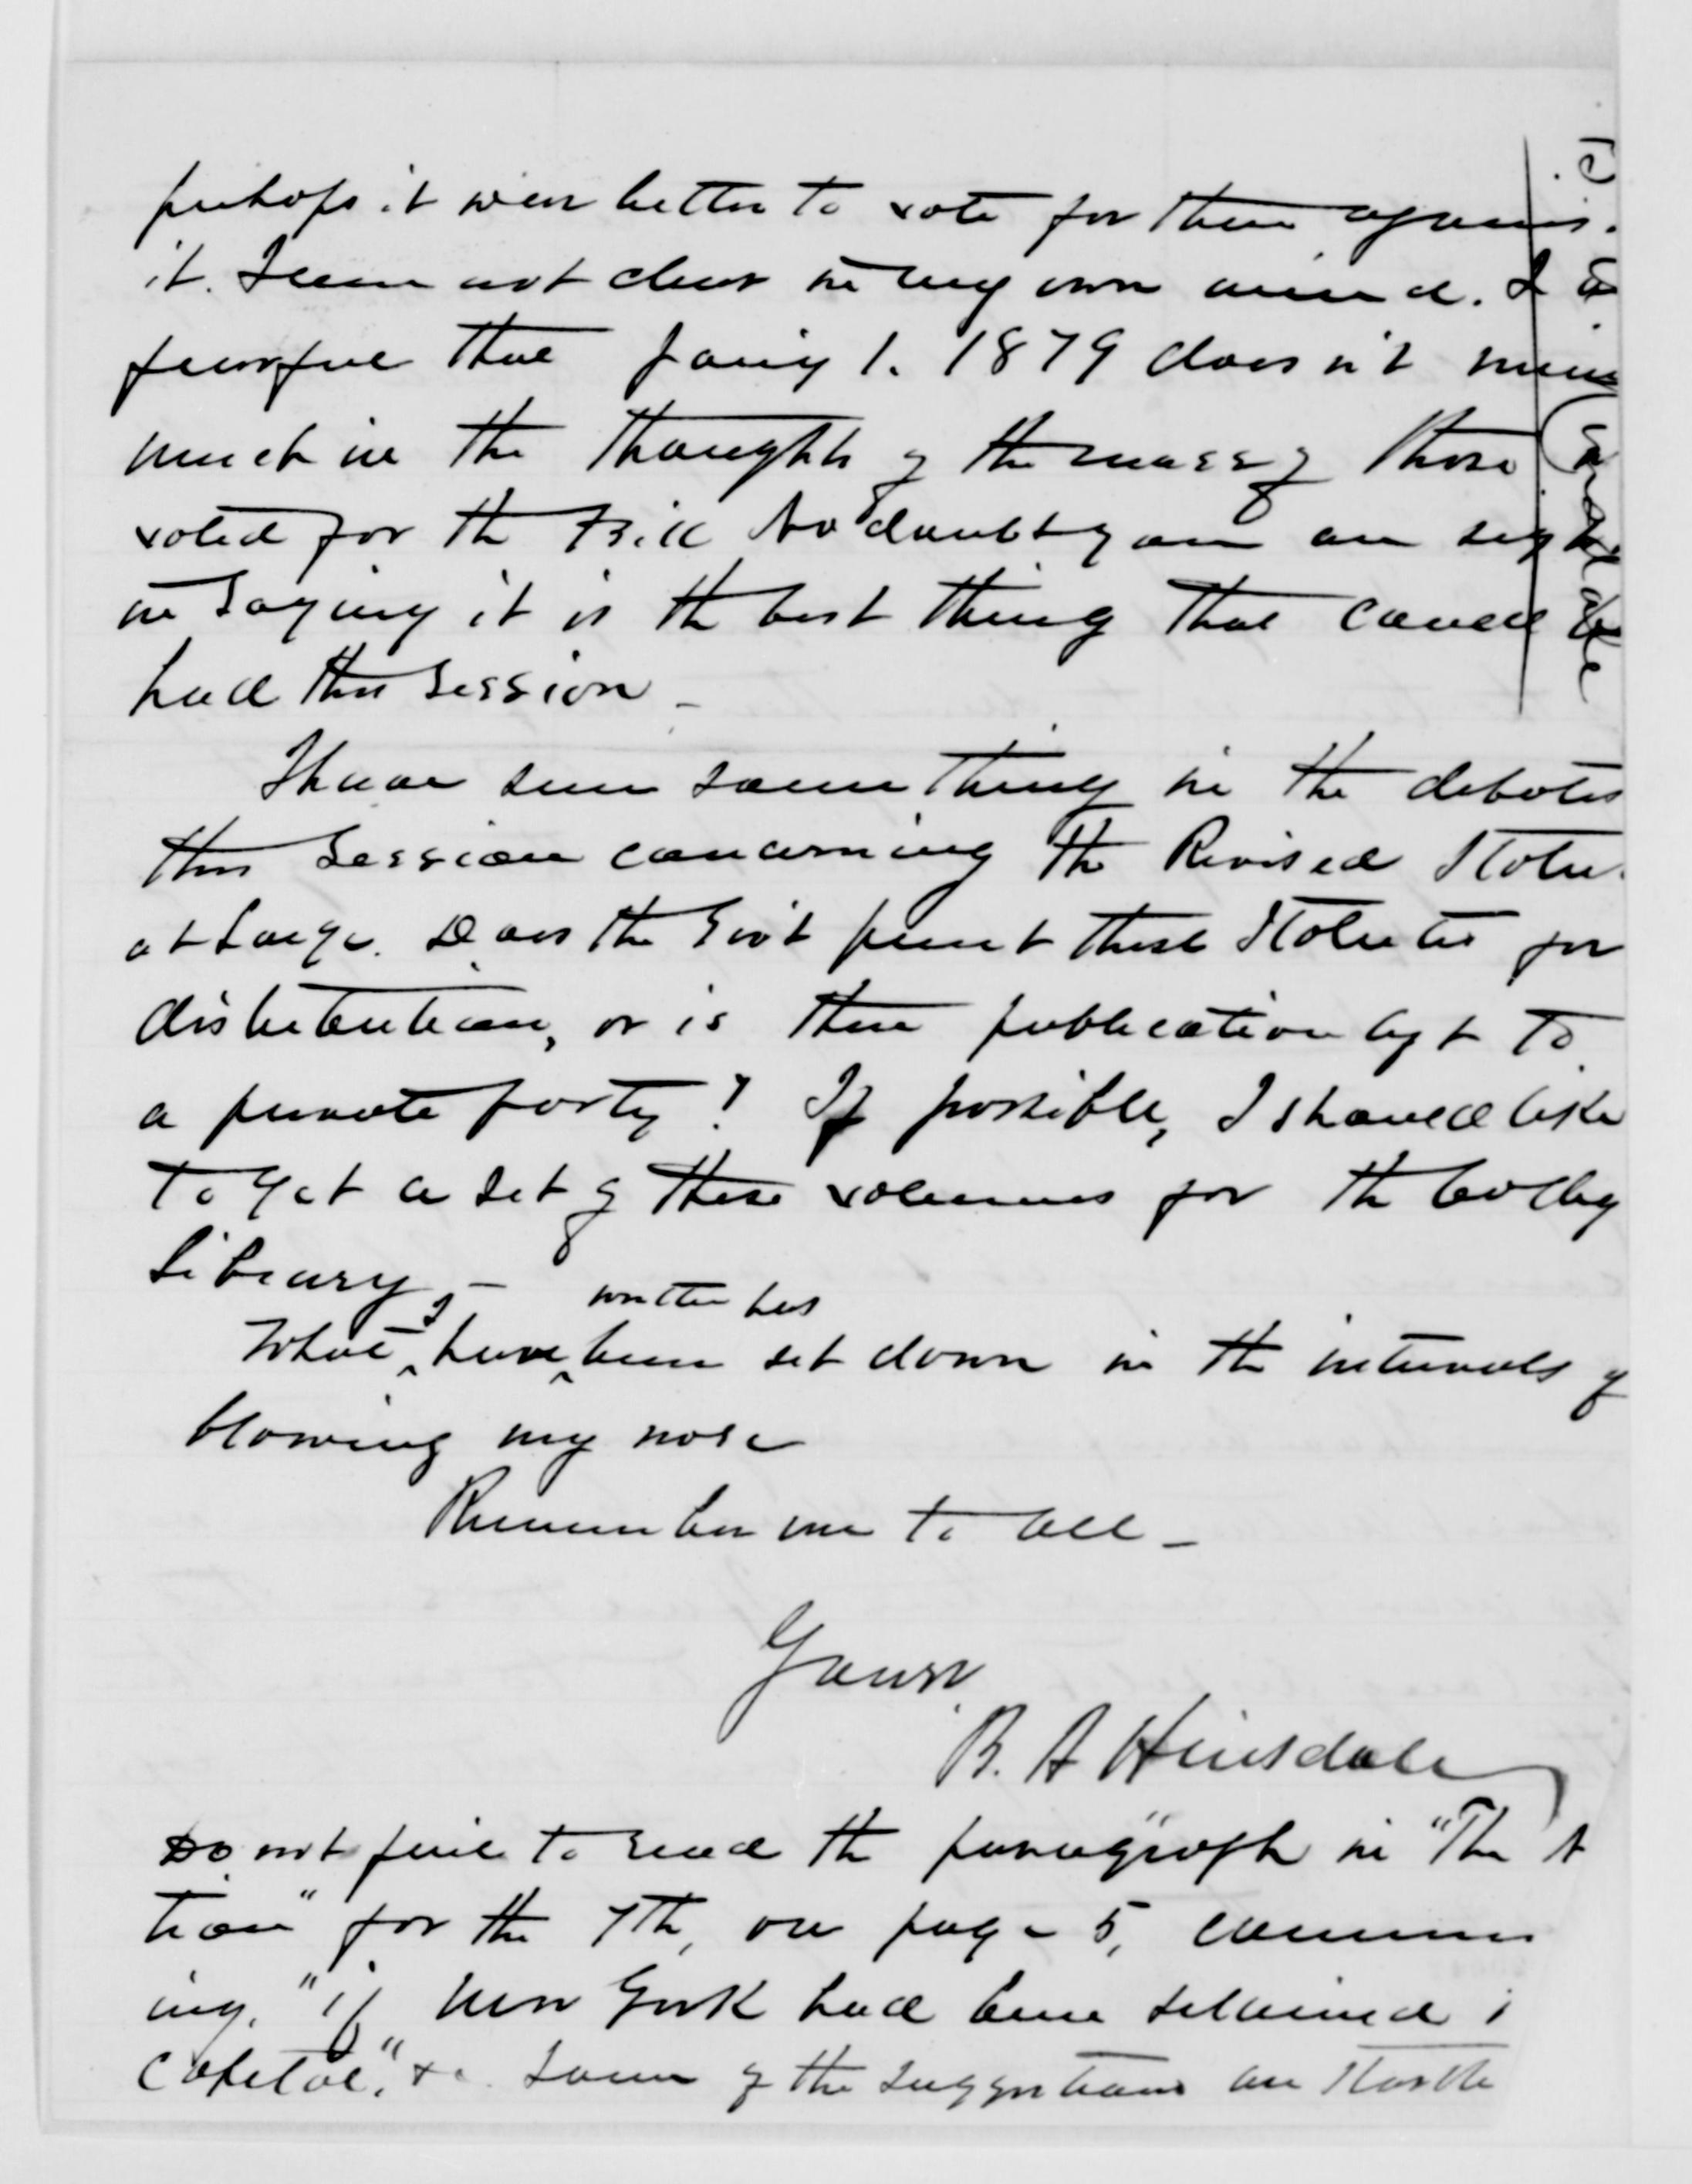 perhaps it were better to vote for than agains
it. I am not clear in my own mind. I
fearful that Jany 1. 1879 does n't mean
much in the thoughts of the mass of those
voted for the Bill No doubt you are right
in saying it is the best thing that could
had this session -
I have seen something in the debates
this Session concerning the Revised Statu
at Large. Does the Gov't print these Statutes for
distribution, or is their publication left to
a private party? If possible, I should like
to get a set of these volumes for the College
Library. -
What I have written has been set down in the intervals of
blowing my nose
Remember me to all -
Yours
B. A Hinsdale
Do not fail to read the paragraph in "The
tion" for the 7th, on page 5, commenc
ing, "if New York had been retained
Capital," &c. Some of the suggestions are